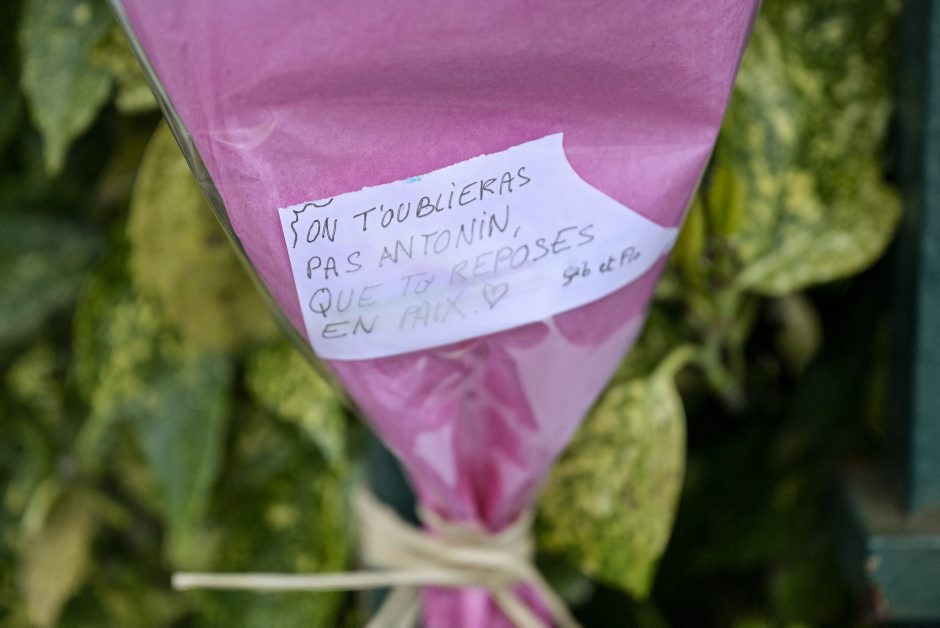 ON T'OUBLIERAS
PAS ANTONIN,
QUE TU REPOSES
EN PAIX. ♡
Gab et Flo